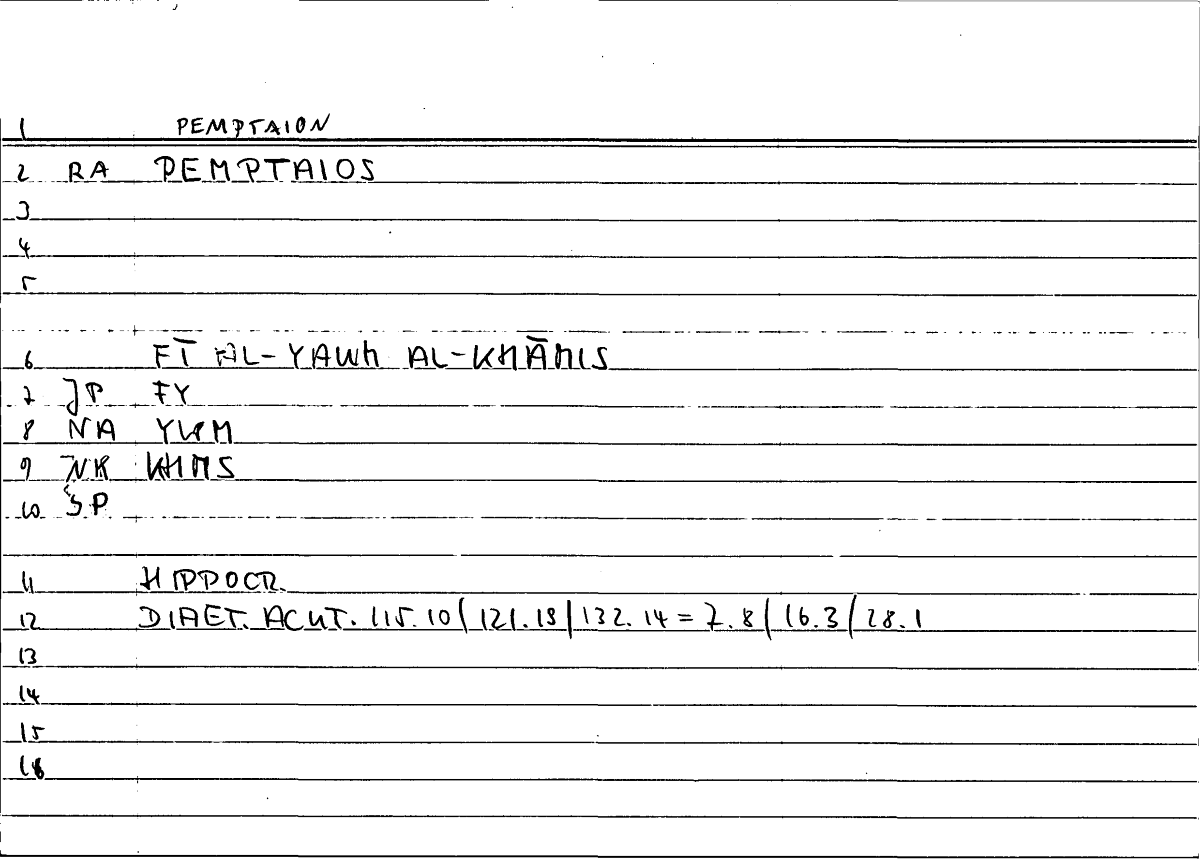 1 PEMPTAION
2 RA PEMPTAIOS
3
4
5
6 FĪ AL-YAWM AL-KHĀMIS
7 JP FY
8 NA YWM
9 NK KHMS
10 SP
11 HIPPOCR.
12 DIAET. ACUT. 115.10/121.18/132.14 = 7.8/16.3/28.1
13
14
15
16